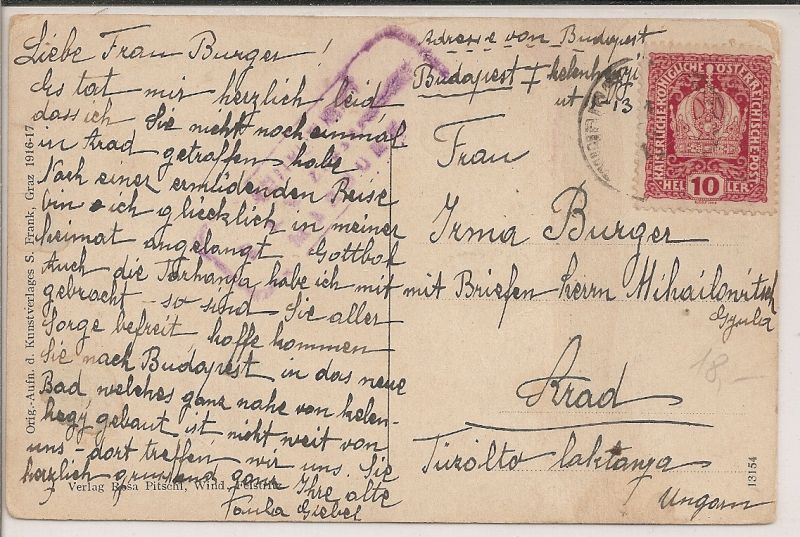 Liebe Frau Burger!
Es tat mir herzlich leid
dass ich Sie nicht noch einmal
in Arad getroffen habe
Nach einer ermüdenden Reise
bin ich glücklich in meiner
heimat angelangt Gottlob
Auch die Tarhanya habe ich mit
gebracht – so sind Sie aller
Sorge befreit, hoffe kommen
Sie nach Budapest in das neue
Bad welches ganz nahe von helen-
hegy gebaut ist nicht weit von
uns – dort treffen wir uns. Sie
herzlich grüssend ganz Ihre alte
Paula Giebel
Adresse von Budapest
Budapest I helenhegyi
ut 1-13
Frau
Irma Burger
mit Briefen Herrn Mihailovitsch
Gyula
Arad
Tüzölto laktanya
Ungarn
18,-
KAISERLICHE KÖNIGLICHE ÖSTERREICHISCHE POST
HELLER
10
Orig.-Aufn. d. Kunstverlages S. Frank, Graz 1916-17
Verlag Rosa Pitschl, Wind. Feistritz
13154